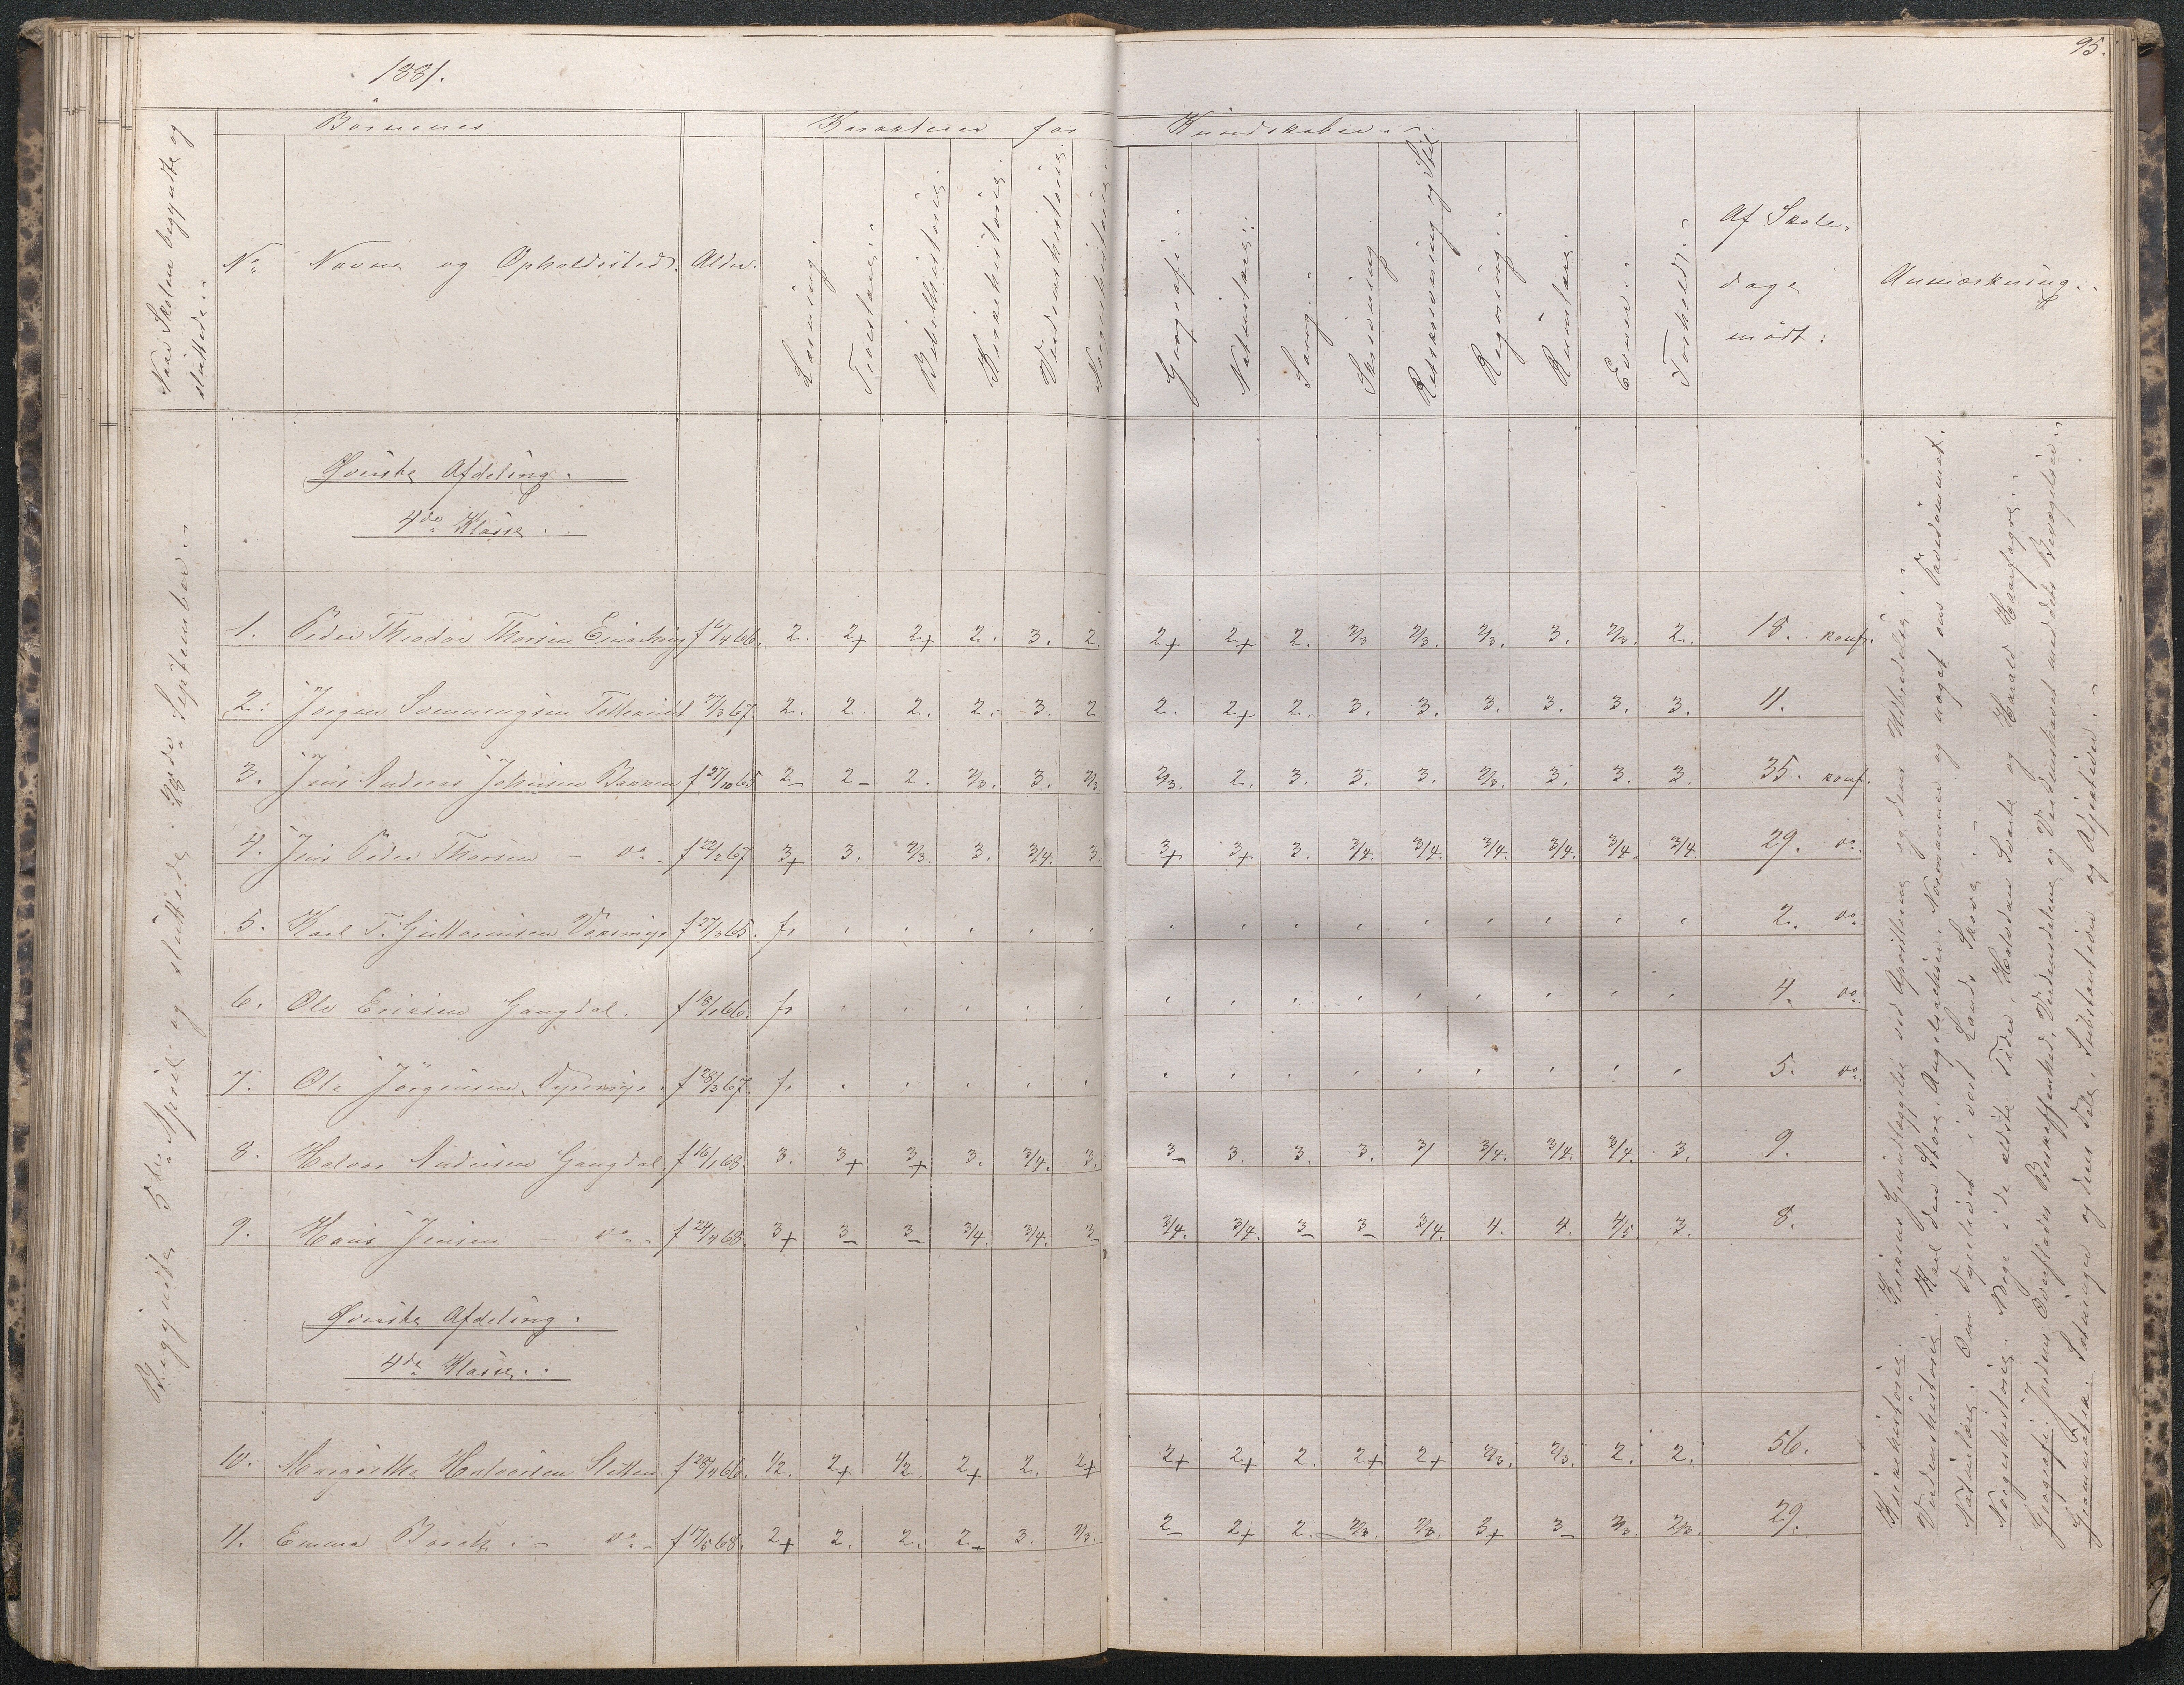 1881.
95.
Börnenes
Karakterer for
Kundskaber.
Naar Skolen begyndte og
sluttede.
No
Navne og Opholdssted.
Alder.
Læsning.
Troeslære.
Bibelhistorie.
Kirkehistorie.
Verdenshistorie.
Norgeshistorie.
Geografi.
Naturlære.
Sang.
Skrivning
Retskrivning og Stil
Regning.
Rumlære.
Evner.
Forhold.
Af Skole-
dage
mödt:
Anmærkning.
Begyndte 5te April og sluttede 28de September.
Øverste Afdeling.
4de Klasse.
1. Peder Theodor Thorsen f 6/4 66. 2. 2+ 2+ 2. 3. 2. 2+ 2+ 2. 2/3 2/3. 2/3. 3. 2/3. 2. 18. konf.
2. Jörgen 27/3 67. 2. 2. 2. 2. 3. 2 2. 2+ 2. 3. 3. 3. 3. 3. 3. 11.
3. Jens Andreas Johnsen Bakken f 27/10 65 2- 2- 2. 2/3. 3. 2/3 2/3. 2. 3. 3. 3. 2/3. 3. 3. 3. 35. konf.
4. Jens Peder Thorsen - do - f 22/2 67 3+ 3. 2/3. 3. 3/4. 3. 3+ 3+ 3. 3/4. 3/4. 3/4. 3/4. 3/4. 3/4. 29. do.
5. Karl T. Guttormsen f 27/3 65. fr 2. do.
6. Ole Eriksen Gangdal. f 18/1 66. fr 4. do.
7. Ole Jörgensen f 28/3 67. fr 5. do.
8. Halvor Andersen Gangdal. f 16/1 68. 3. 3+ 3+ 3. 3/4. 3. 3- 3. 3. 3. 3/ 3/4. 3/4. 3/4. 3. 9.
9. Hans Jensen - do - f 24/4 68. 3+ 3- 3- 3/4. 3/4. 3- 3/4. 3/4. 3- 3- 3/4. 4. 4. 4/5. 3. 8.
Øverste Afdeling.
4de Klasse.
10. Margrethe Halvorsen Sletten f 28/4 66. 1/2. 2+ 1/2. 2+ 2. 2+ 2+ 2+ 2. 2+ 2+ 2/3. 2/3. 2. 2. 56.
11. Emma Boreth. - do - f 17/5 68. 2+ 2. 2. 2- 3. 2/3. 2- 2+ 2. 2/3. 2/3. 3+ 3- 2/3. 2/3. 29.
Kirkehistorie. Kirkens Grundlæggelse ved Apostlene og dens Udbredelse.
Verdenshistorie. Karl den Store, Angelsachser, Normanner og noget om Pavedömmet.
Naturlære. Om Dyrelivet i vort Lands Skove.
Norgeshistorie. Norge i de ældste Tider, Halvdan Svarte og Harald Haarfagre.
Geografi. Jordens Overflades Beskaffenhed, Verdensdelene og Verdenshavet med dets Bevægelser.
Grammatik. Sætningen og dens Dele, Substantiver og Adjektiver.